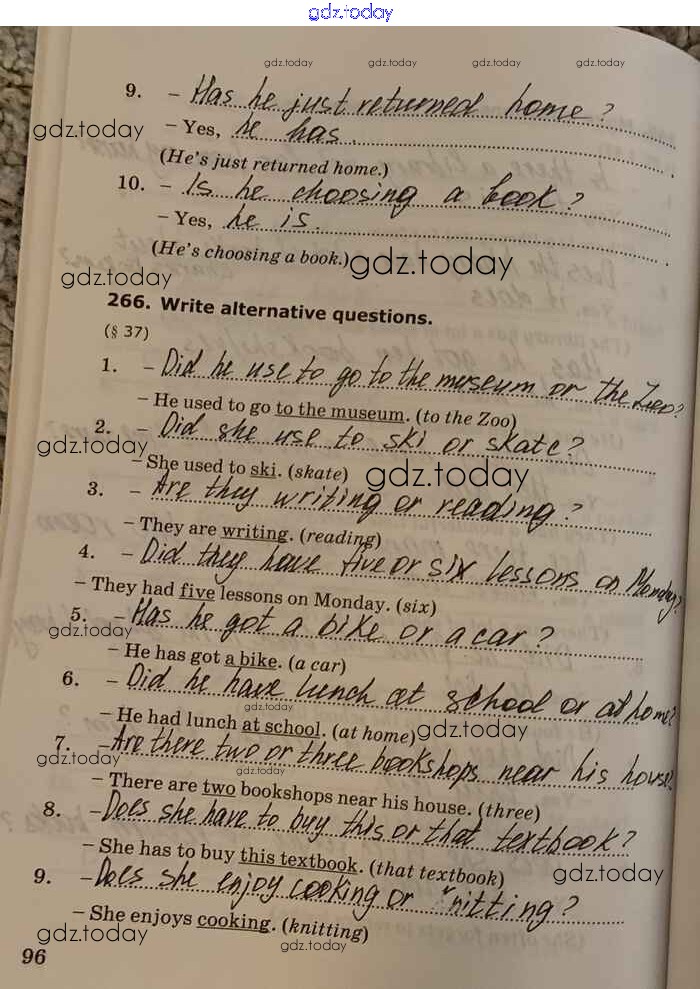 gdz.today
gdz.today gdz.today gdz.today gdz.today
9. – Has he just returned home?
gdz.today
– Yes, he has.
(He's just returned home.)
10. – Is he choosing a book?
– Yes, he is.
(He's choosing a book.)
gdz.today
gdz.today
266. Write alternative questions.
(§ 37)
1. – Did he use to go to the museum or the Zoo?
– He used to go to the museum. (to the Zoo)
2. – Did she use to ski or skate?
gdz.today
– She used to ski. (skate)
gdz.today
3. – Are they writing or reading?
– They are writing. (reading)
4. – Did they have five or six lessons on Monday?
– They had five lessons on Monday. (six)
5. – Has he got a bike or a car?
gdz.today
– He has got a bike. (a car)
6. – Did he have lunch at school or at home?
gdz.today
– He had lunch at school. (at home)
gdz.today
7. – Are there two or three bookshops near his house?
gdz.today
gdz.today
– There are two bookshops near his house. (three)
8. – Does she have to buy this or that textbook?
– She has to buy this textbook. (that textbook)
gdz.today
9. – Does she enjoy cooking or nitting?
– She enjoys cooking. (knitting)
gdz.today
gdz.today
96